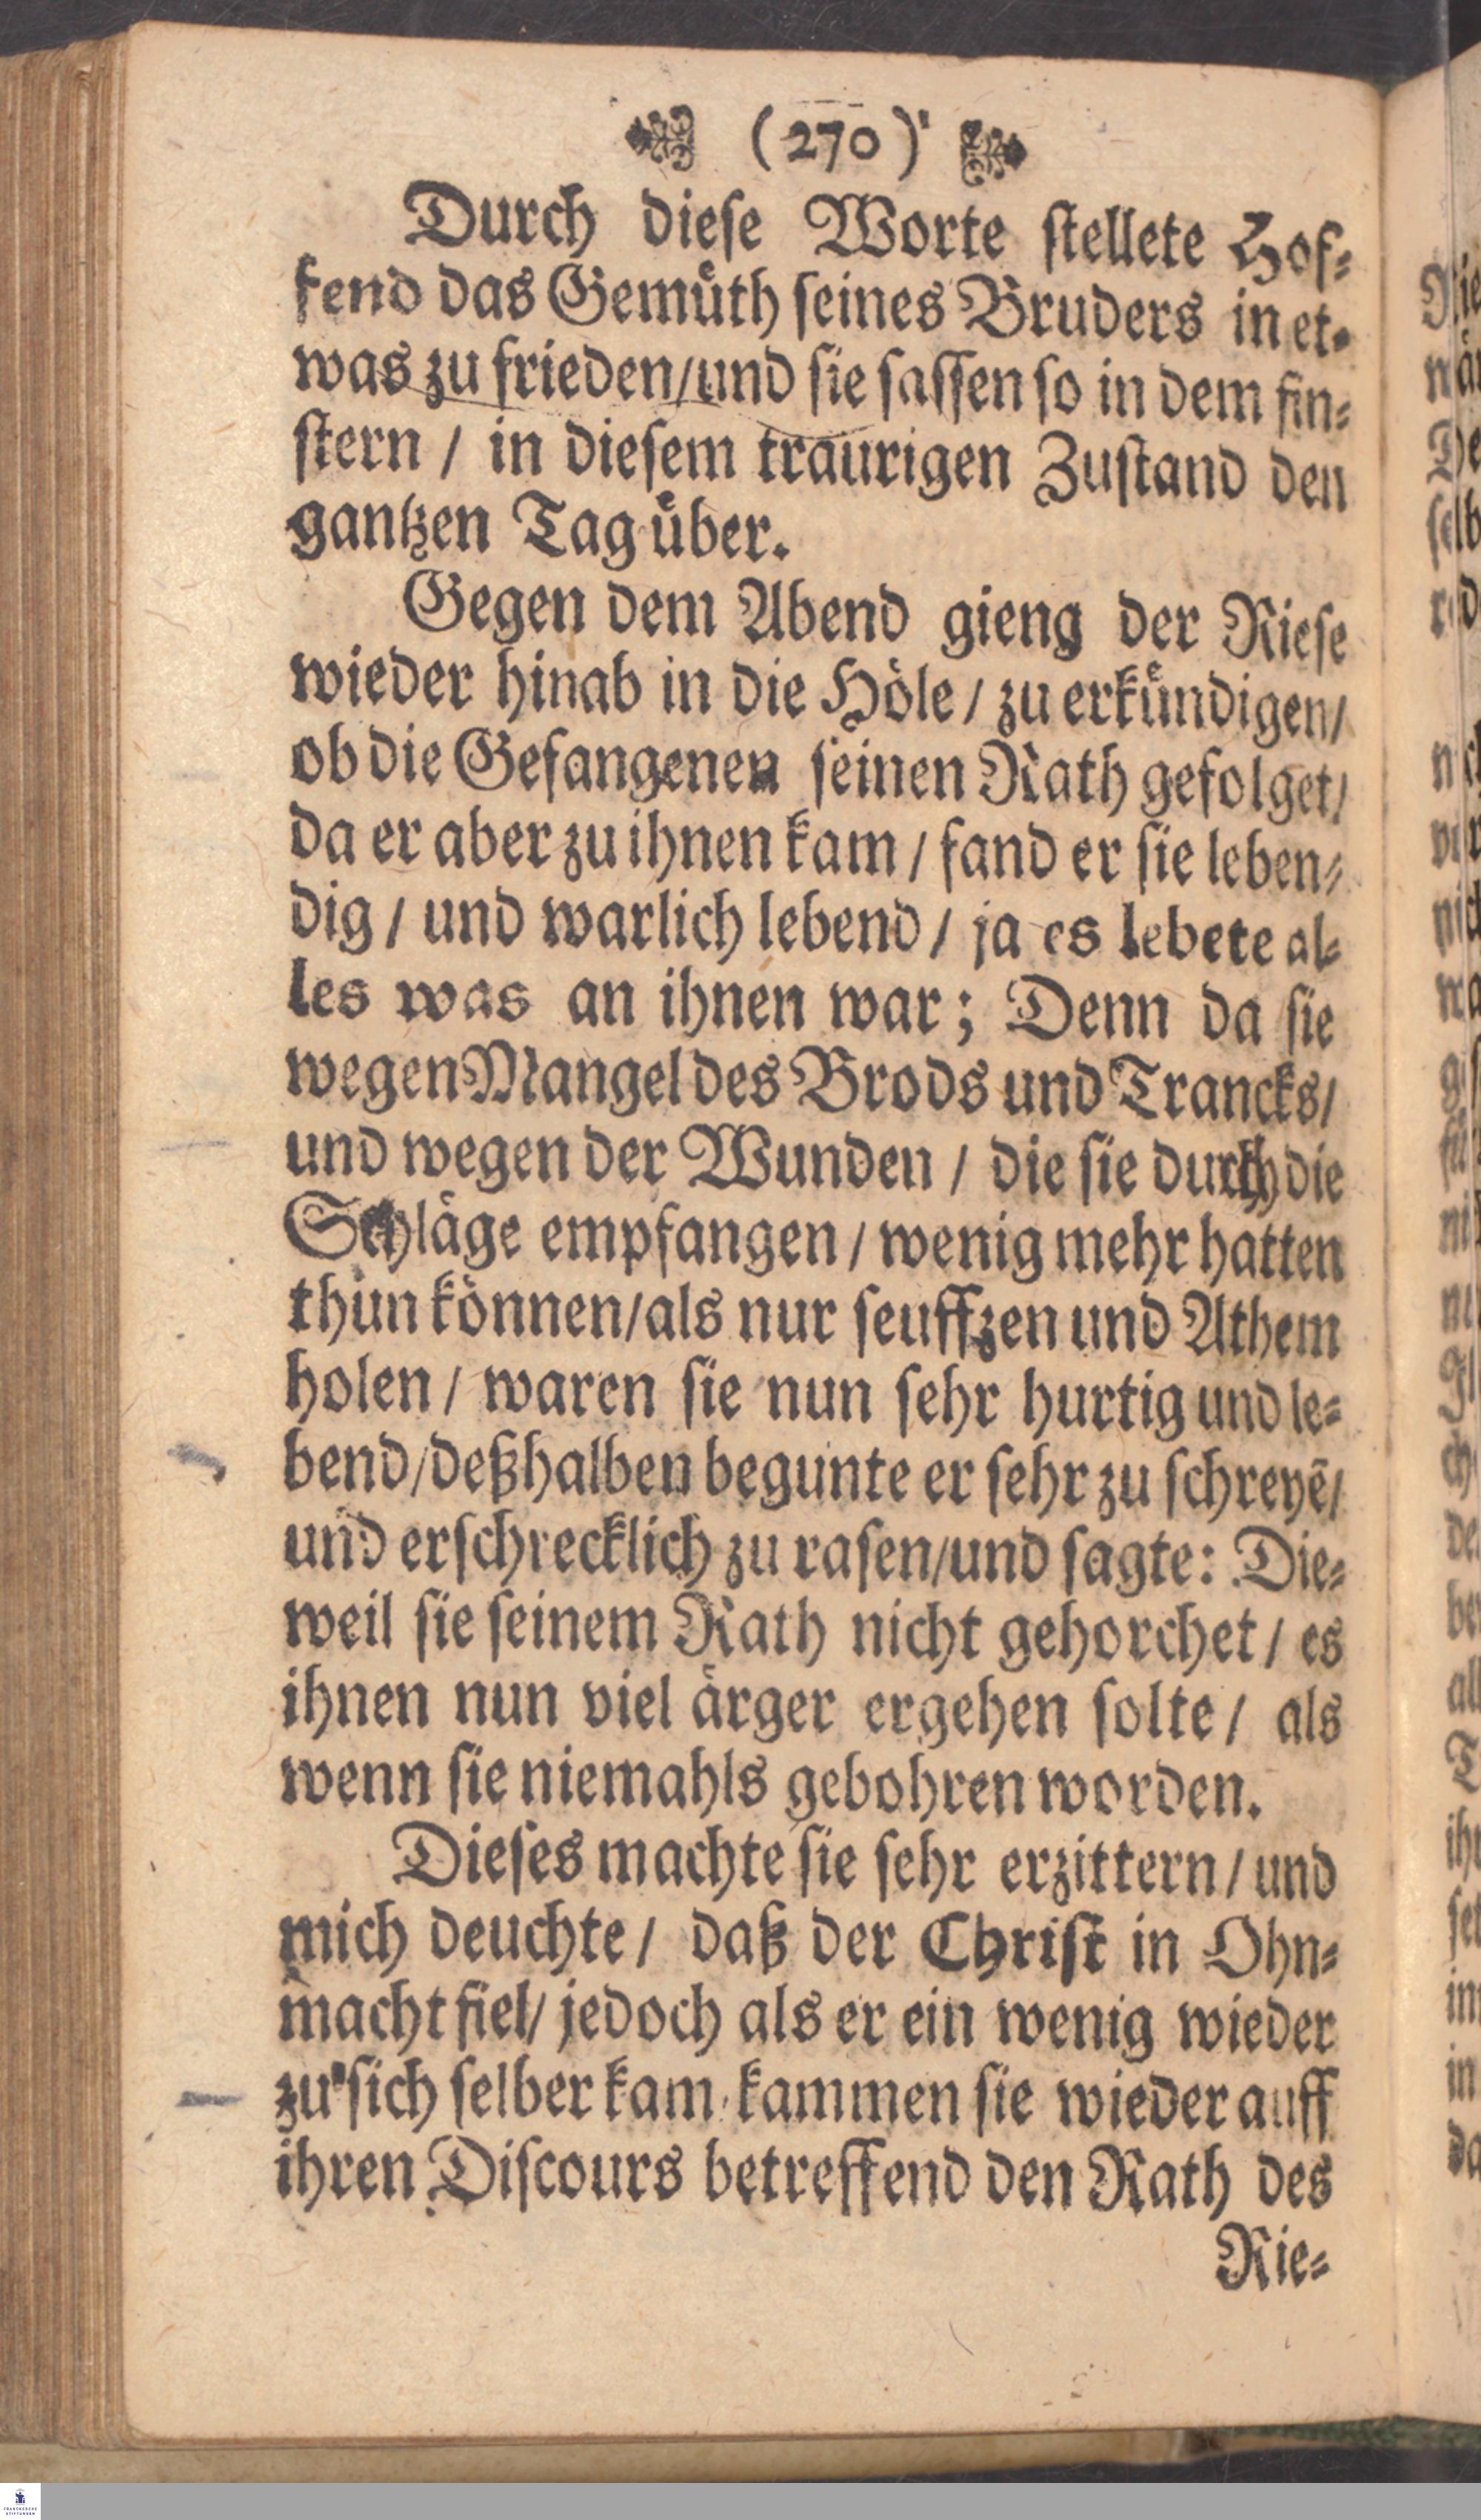 (270)
Durch dieſe Worte ſtellete Hof⸗
fend das Gemuͤth ſeines Bruders in et⸗
was zu frieden/und ſie ſaſſen ſo in dem fin⸗
ſtern / in dieſem traurigen Zuſtand den
gantzen Tag uͤber.
Gegen dem Abend gieng der Rieſe
wieder hinab in die Hoͤle / zu erkuͤndigen/
ob die Gefangenen ſeinen Rath gefolget/
da er aber zu ihnen kam / fand er ſie leben⸗
dig / und warlich lebend / ja es lebete al⸗
les was an ihnen war; Denn da ſie
wegen Mangel des Brods und Trancks/
und wegen der Wunden / die ſie durch die
Schlaͤge empfangen / wenig mehr hatten
thun koͤnnen/als nur ſeuffzen und Athem
holen / waren ſie nun ſehr hurtig und le⸗
bend/deßhalben begunte er ſehr zu ſchreyē/
und erſchrecklich zu raſen/und ſagte: Die⸗
weil ſie ſeinem Rath nicht gehorchet / es
ihnen nun viel aͤrger ergehen ſolte / als
wenn ſie niemahls gebohren worden.
Dieſes machte ſie ſehr erzittern / und
mich deuchte / daß der Chriſt in Ohn⸗
macht fiel/ jedoch als er ein wenig wieder
zu ſich ſelber kam, kammen ſie wieder auff
ihren Diſcours betreffend den Rath des
Rie⸗